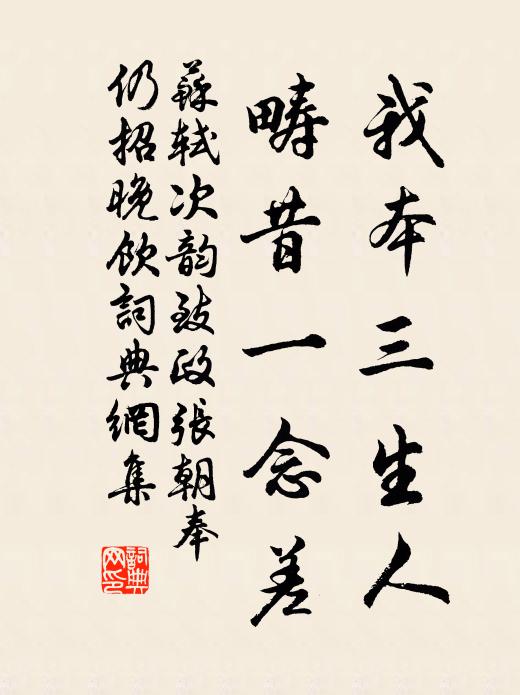 我本三生人
疇昔一念差
蘇軾次韵致政張朝奉
仍招晚飲詞典網集
詞典网印